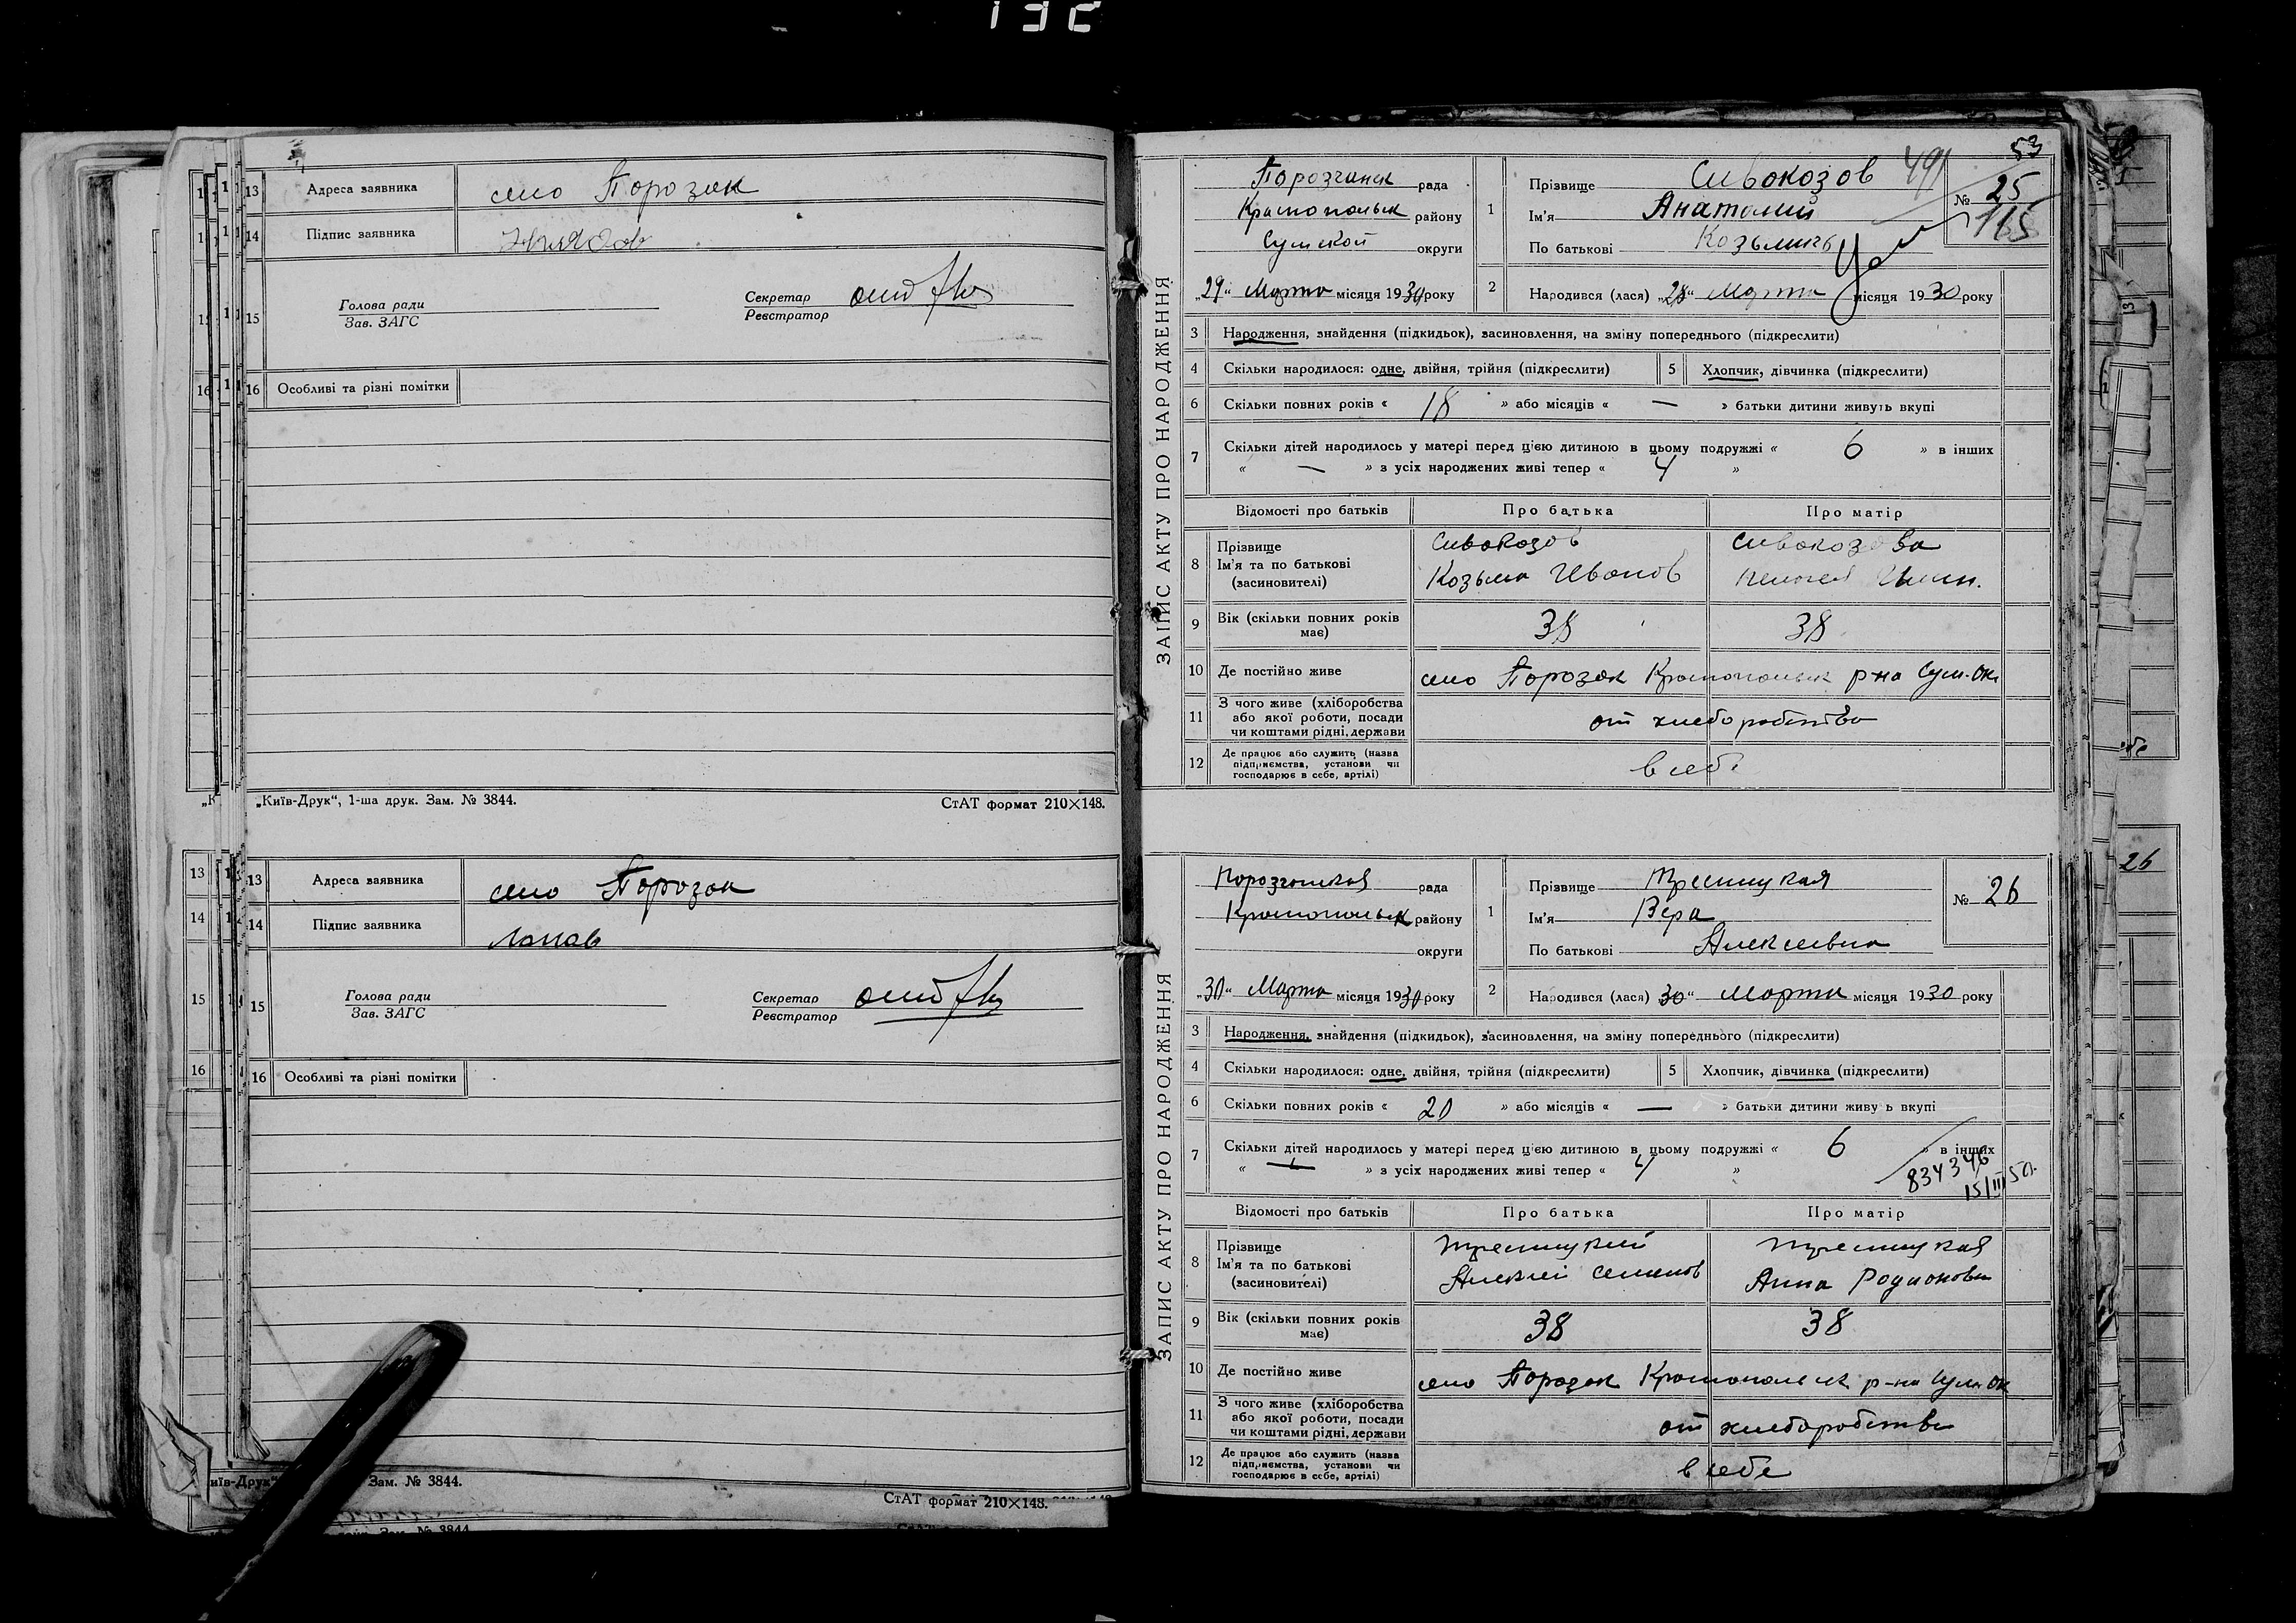 132
13 Адреса заявника село Порозок
14 Підпис заявника
15 Голова ради
Зав. ЗАГС
Секретар
Реєстратор
16 Особливі та різні помітки
„Київ-Друк“, 1-ша друк. Зам. № 3844.
СтАТ формат 210×148.
13 Адреса заявника село Порозок
14 Підпис заявника
15 Голова ради
Зав. ЗАГС
Секретар
Реєстратор
16 Особливі та різні помітки
Зам. № 3844.
СтАТ формат 210×148.
53
ЗАПИС АКТУ ПРО НАРОДЖЕННЯ
Порозчанск рада
Краснопольск району
Сумской округи
„29“ Марта місяця 1930 року
1 Прізвище Сивокозов 491
Ім'я Анатолий
По батькові Козьмичь
№ 25
165
2 Народився (лася) „28“ Марта місяця 1930 року
3 Народження, знайдення (підкидьок), засиновлення, на зміну попереднього (підкреслити)
4 Скільки народилося: одне, двійня, трійня (підкреслити) 5 Хлопчик, дівчинка (підкреслити)
6 Скільки повних років « 18 » або місяців « — » батьки дитини живуть вкупі
7 Скільки дітей народилось у матері перед цією дитиною в цьому подружжі « 6 » в інших
« — » з усіх народжених живі тепер « 4 »
Відомості про батьків Про батька Про матір
8 Прізвище Сивокозов Сивокозова
Ім'я та по батькові Козьма Иванов
(засиновителі)
9 Вік (скільки повних років має) 38 38
10 Де постійно живе село Порозок Краснопольск р-на Сум. Ок.
11 З чого живе (хліборобства
або якої роботи, посади
чи коштами рідні, держави от хлеборобства
12 Де працює або служить (назва
підприємства, установи чи
господарює в себе, артілі) в себе
ЗАПИС АКТУ ПРО НАРОДЖЕННЯ
Порозчанская рада
Краснопольск району
округи
„30“ Марта місяця 1930 року
1 Прізвище
Ім'я Вера
По батькові Алексеевна
№ 26
2 Народився (лася) 30“ Марта місяця 1930 року
3 Народження, знайдення (підкидьок), засиновлення, на зміну попереднього (підкреслити)
4 Скільки народилося: одне, двійня, трійня (підкреслити) 5 Хлопчик, дівчинка (підкреслити)
6 Скільки повних років « 20 » або місяців « — » батьки дитини живу ь вкупі
7 Скільки дітей народилось у матері перед цією дитиною в цьому подружжі « 6 » в інших
« — » з усіх народжених живі тепер « 4 »
834346
15/III
Відомості про батьків Про батька Про матір
8 Прізвище
Ім'я та по батькові Алексей Семенов Анна Родионовн
(засиновителі)
9 Вік (скільки повних років має) 38 38
10 Де постійно живе село Порозок Краснопольск р-на Сум Ок
11 З чого живе (хліборобства
або якої роботи, посади
чи коштами рідні, держави от хлеборобства
12 Де працює або служить (назва
підприємства, установи чи
господарює в себе, артілі) в себе